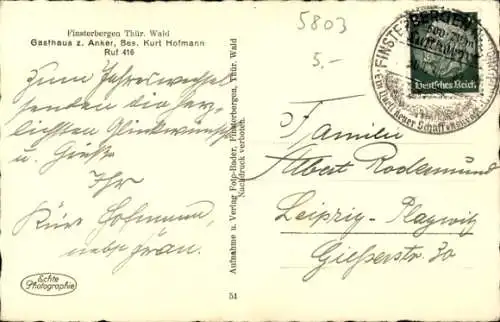 Finsterbergen Thür. Wald
Gasthaus z. Anker, Bes. Kurt Hofmann
Ruf 416
5803
5,-
Zum Jahreswechsel
senden die her-
lichsten Glückwünsche
u. Grüße
Ihr
Kurt Hofmann,
nebst Frau.
Echte
Photographie
Aufnahme u. Verlag Foto-Bader, Finsterbergen, Thür. Wald
Nachdruck verboten.
51
FINSTERBERGEN
Luftkurort
Deutsches Reich
Familien
Albert Rodermund
Leipzig-Plagwitz
Gießerstr. 30